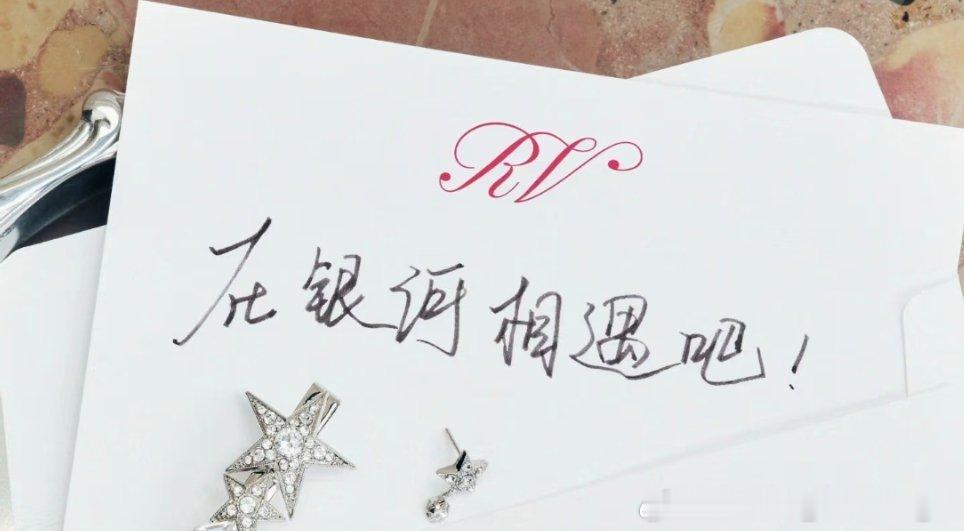 RV
在银河相遇吧！